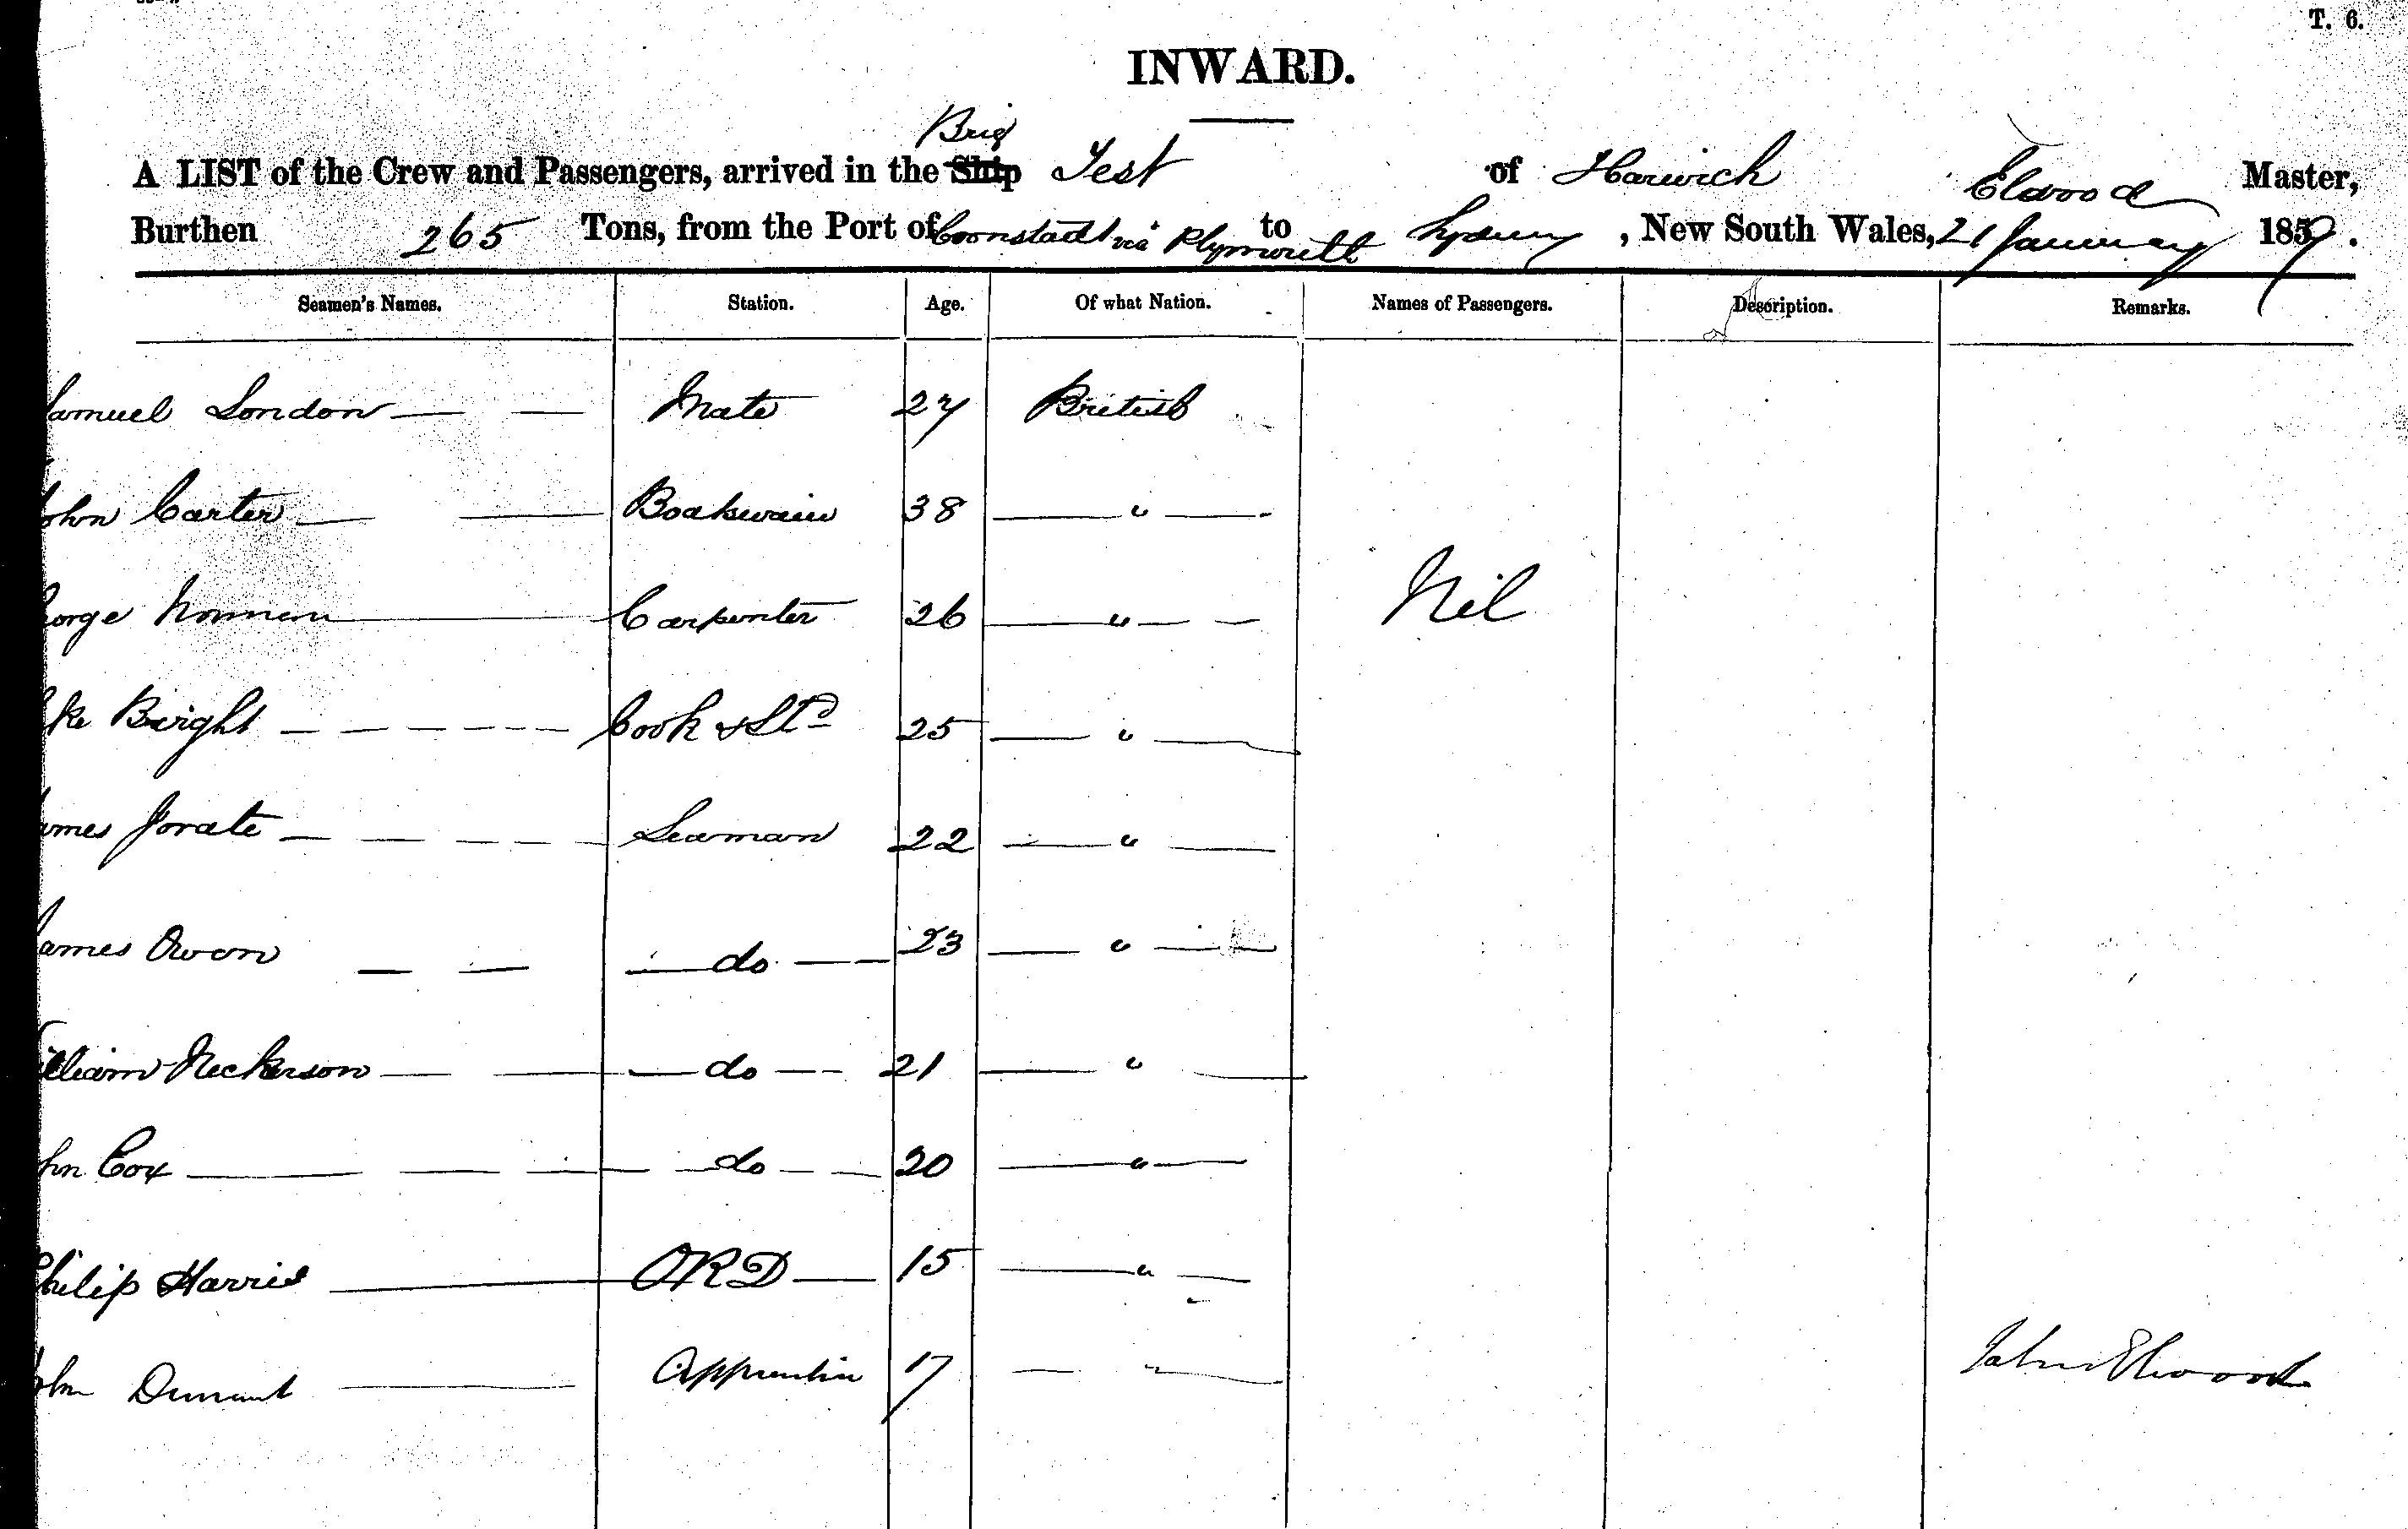 T. 6.
INWARD.
Brig
A LIST of the Crew and Passengers, arrived in the Ship Test of Harwich Elwood Master,
Burthen 265 Tons, from the Port of Cronstadt via Plymouth to Sydney, New South Wales, 21 January 1859.
Seamen's Names. Station. Age. Of what Nation. Names of Passengers. Description. Remarks.
Samuel London Mate 27 British
John Carter Boatswain 38 "
George Norman Carpenter 26 " Nil
Bright Cook & Std 25 "
James Seaman 22 "
James Owen do 23 "
William Neckerson do 21 "
John Cox do 20 "
Philip Harris ORD 15 "
John Durrant Apprentice 17 "
John Elwood